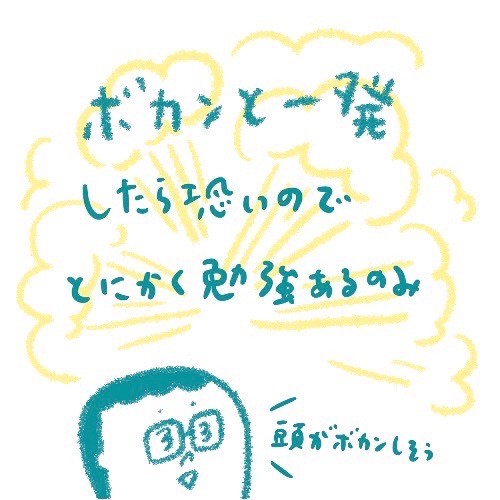 ボカンと一発
したら恐いので
とにかく勉強あるのみ
頭がボカンしそう